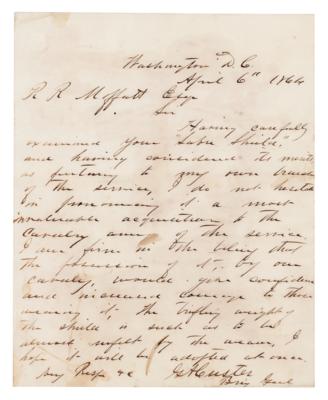 Washington D.C.
April 6th 1864
R R Moffatt Esqr
Sir
Having carefully
examined your Sabre Shield,
and having considered its merits
as pertaing to my own branch
of the service, I do not hesitate
in pronouncing it a most
invaluable acquisition to the
Cavalry arm of the service.
I am firm in the belief that
the possession of it, by our
cavalry, would give confidence
and increased courage to those
wearing it, the trifling weight of
the shield is such as to be
almost unfelt by the wearer, I
hope it will be adopted at once.
Very Resp &c
GACuster
Brig Genl